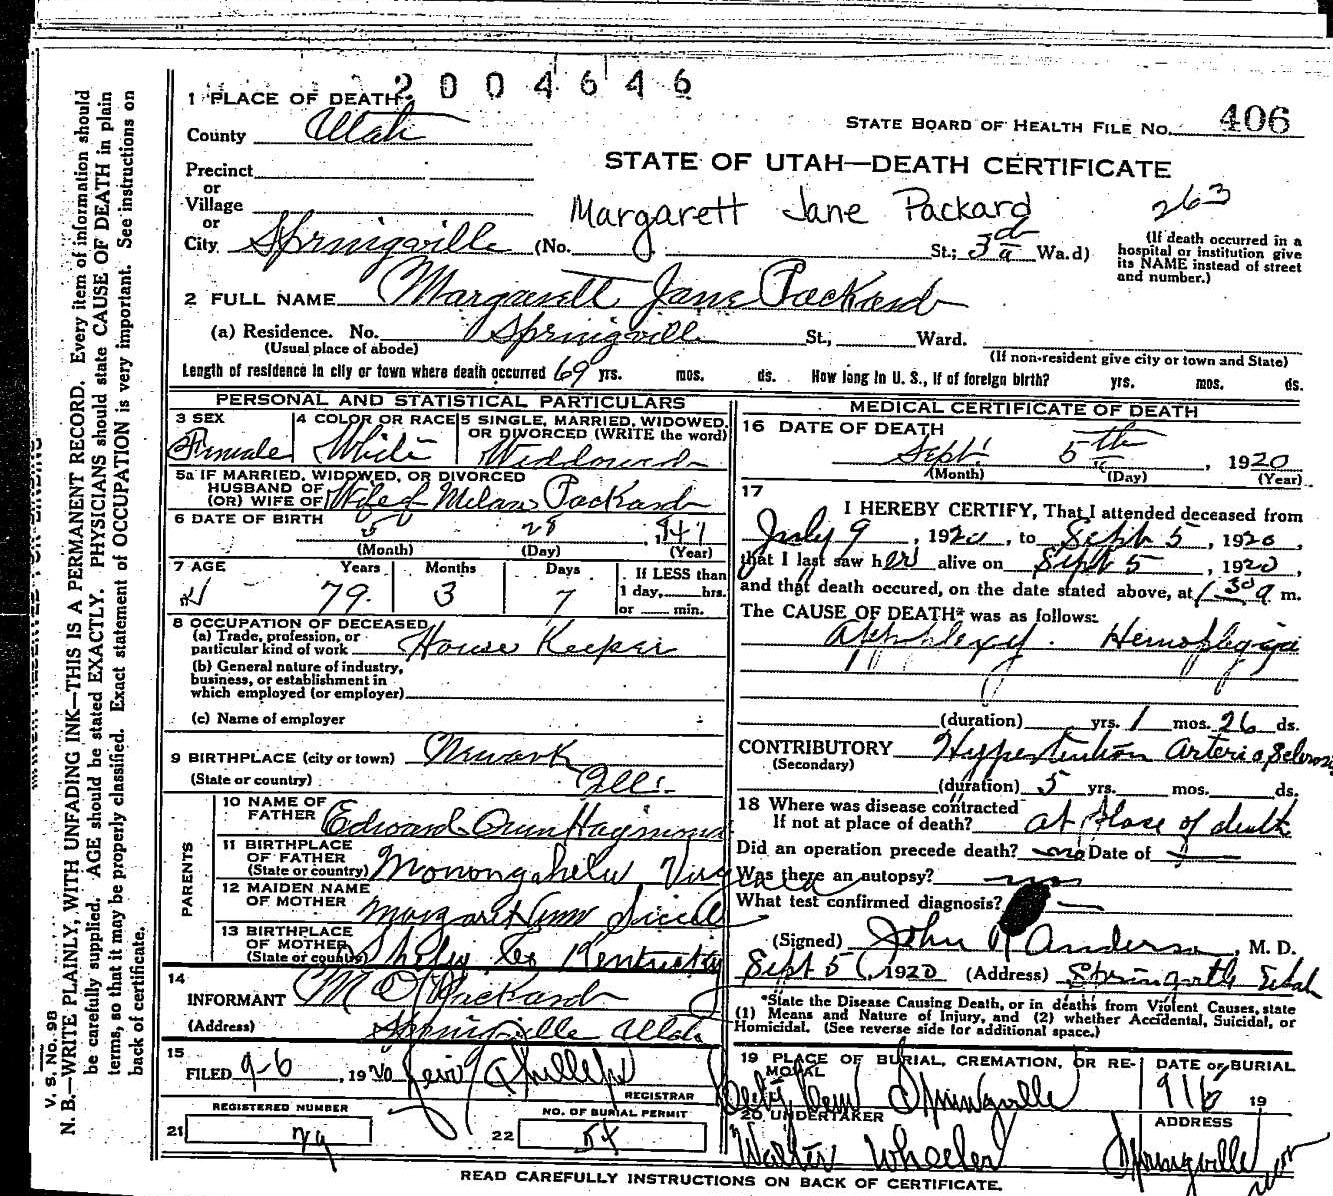 2004646
1 PLACE OF DEATH
County Utah
STATE BOARD OF HEALTH FILE NO. 406
STATE OF UTAH—DEATH CERTIFICATE
Precinct
or
Village
or
Margarett Jane Packard
263
City Springville (No. St.; 3d Wa.d)
(If death occurred in a hospital or institution give its NAME instead of street and number.)
2 FULL NAME Margarett Jane Packard
(a) Residence. No. Springville St., Ward.
(Usual place of abode)
(If non-resident give city or town and State)
Length of residence in city or town where death occurred 69 yrs. mos. ds. How long in U. S., if of foreign birth? yrs. mos. ds.
PERSONAL AND STATISTICAL PARTICULARS
3 SEX
Female
4 COLOR OR RACE
White
5 SINGLE, MARRIED, WIDOWED, OR DIVORCED (WRITE the word)
Widdowed
5a IF MARRIED, WIDOWED, OR DIVORCED
HUSBAND OF
(OR) WIFE OF Wife of Milan Packard
6 DATE OF BIRTH 5 28, 1841
(Month) (Day) (Year)
7 AGE Years Months Days If LESS than
79 3 7 1 day, hrs.
or min.
8 OCCUPATION OF DECEASED
(a) Trade, profession, or
particular kind of work House Keeper
(b) General nature of industry,
business, or establishment in
which employed (or employer)
(c) Name of employer
9 BIRTHPLACE (city or town) Newark
(State or country) Ill.
PARENTS
10 NAME OF
FATHER Edward
11 BIRTHPLACE
OF FATHER
(State or country) Monongahela Virginia
12 MAIDEN NAME
OF MOTHER Margaret Ann
13 BIRTHPLACE
OF MOTHER
(State or country) Shelby Co Kentucky
14
INFORMANT M O Packard
(Address) Springville Utah
15
FILED 9-6, 1920 Phillips
REGISTRAR
REGISTERED NUMBER
21 79
NO. OF BURIAL PERMIT
22 54
MEDICAL CERTIFICATE OF DEATH
16 DATE OF DEATH
Sept. 5th, 1920
(Month) (Day) (Year)
17
I HEREBY CERTIFY, That I attended deceased from
July 9, 1920, to Sept 5, 1920,
that I last saw her alive on Sept 5, 1920,
and that death occured, on the date stated above, at 1 30 a m.
The CAUSE OF DEATH* was as follows:
Apoplexy. Hemoplegia
(duration) yrs. 1 mos. 26 ds.
CONTRIBUTORY Hypertention Arterio Sclerosis
(Secondary)
(duration) 5 yrs. mos. ds.
18 Where was disease contracted
If not at place of death? at place of death
Did an operation precede death? no Date of
Was there an autopsy? no
What test confirmed diagnosis?
(Signed) John Anderson, M. D.
Sept 5, 1920 (Address) Springville Utah
*State the Disease Causing Death, or in deaths from Violent Causes, state
(1) Means and Nature of Injury, and (2) whether Accidental, Suicidal, or
Homicidal. (See reverse side for additional space.)
19 PLACE OF BURIAL, CREMATION, OR RE-
MOVAL
DATE OF BURIAL
City Cem Springville
9/6 19
20 UNDERTAKER
ADDRESS
Walter Wheeler
Springville
READ CAREFULLY INSTRUCTIONS ON BACK OF CERTIFICATE.
V. S. No. 98
N. B.—WRITE PLAINLY, WITH UNFADING INK—THIS IS A PERMANENT RECORD. Every item of information should
be carefully supplied. AGE should be stated EXACTLY. PHYSICIANS should state CAUSE OF DEATH in plain
terms, so that it may be properly classified. Exact statement of OCCUPATION is very important. See instructions on
back of certificate.